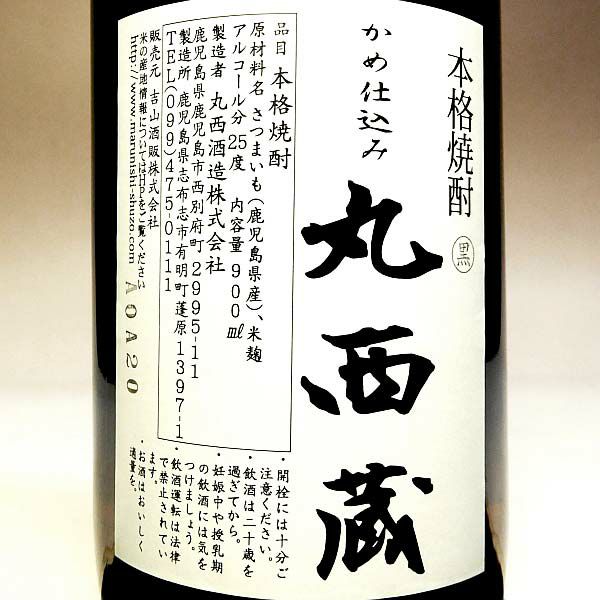 本格焼酎
黒
かめ仕込み
丸西蔵
品目 本格焼酎
原材料名 さつまいも(鹿児島県産)、米麹
アルコール分 25度 内容量 900ml
製造者 丸西酒造株式会社
鹿児島県鹿児島市西別府町2995-11
製造所 鹿児島県志布志市有明町蓬原1397-1
TEL(099)475-0111
販売元 吉山酒販株式会社
米の産地情報についてはHPをご覧ください
http://www.marunishi-shuzo.com
A0A20
・開栓には十分ご
注意ください。
・飲酒は二十歳を
過ぎてから。
・妊娠中や授乳期
の飲酒には気を
つけましょう。
・飲酒運転は法律
で禁止されてい
ます。
・お酒はおいしく
適量を。